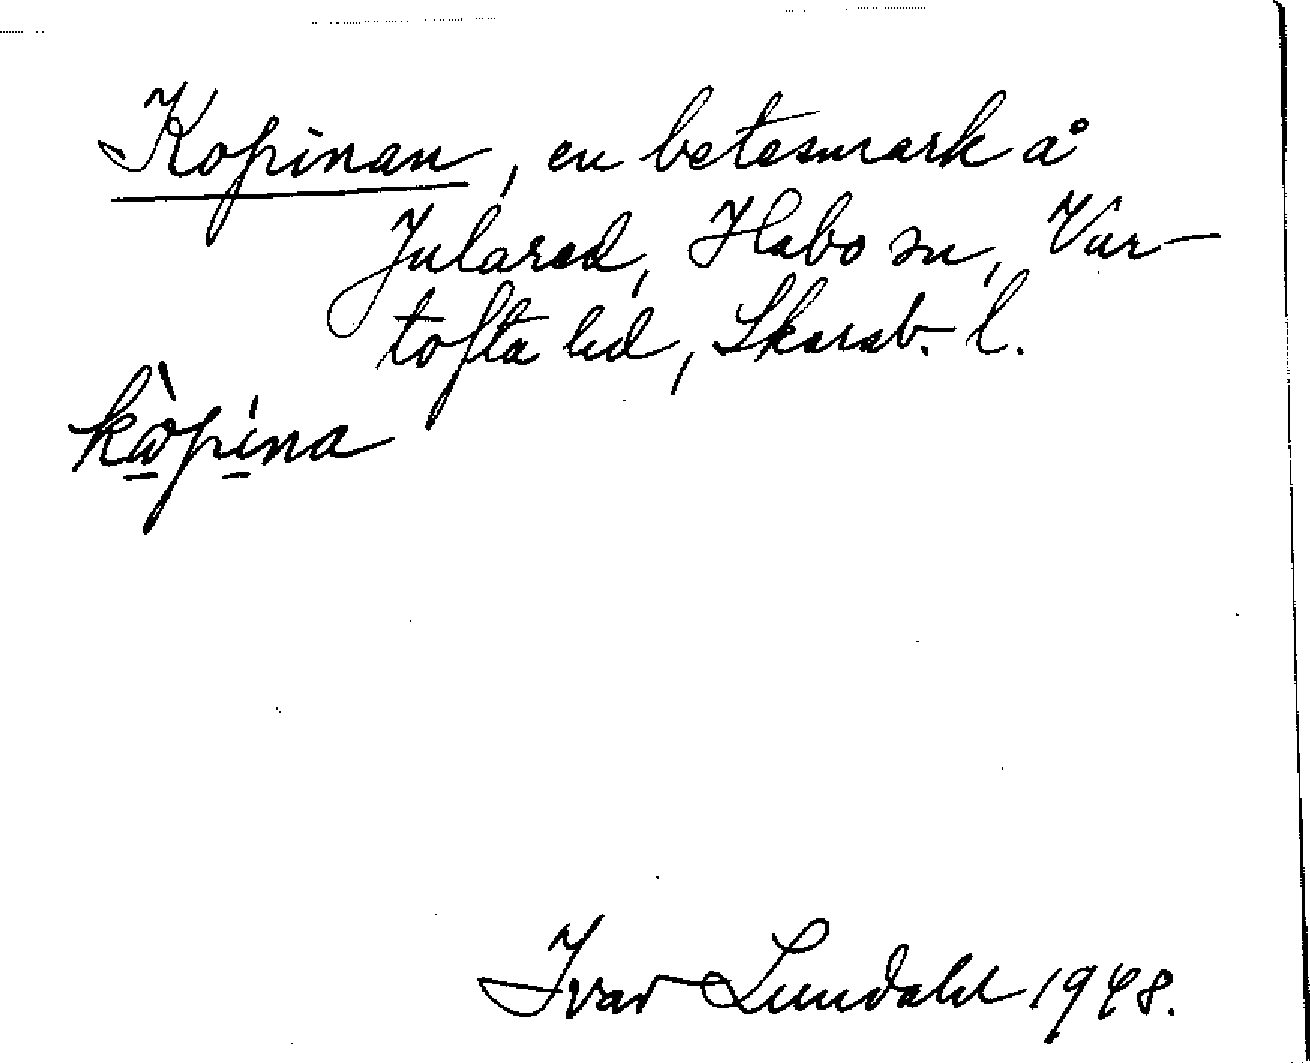 Kopinan, en betesmark å
Julared, Habo sn, Var-
tofta hd, Skarab. l.
kòpína
Ivar Lundahl 1948.